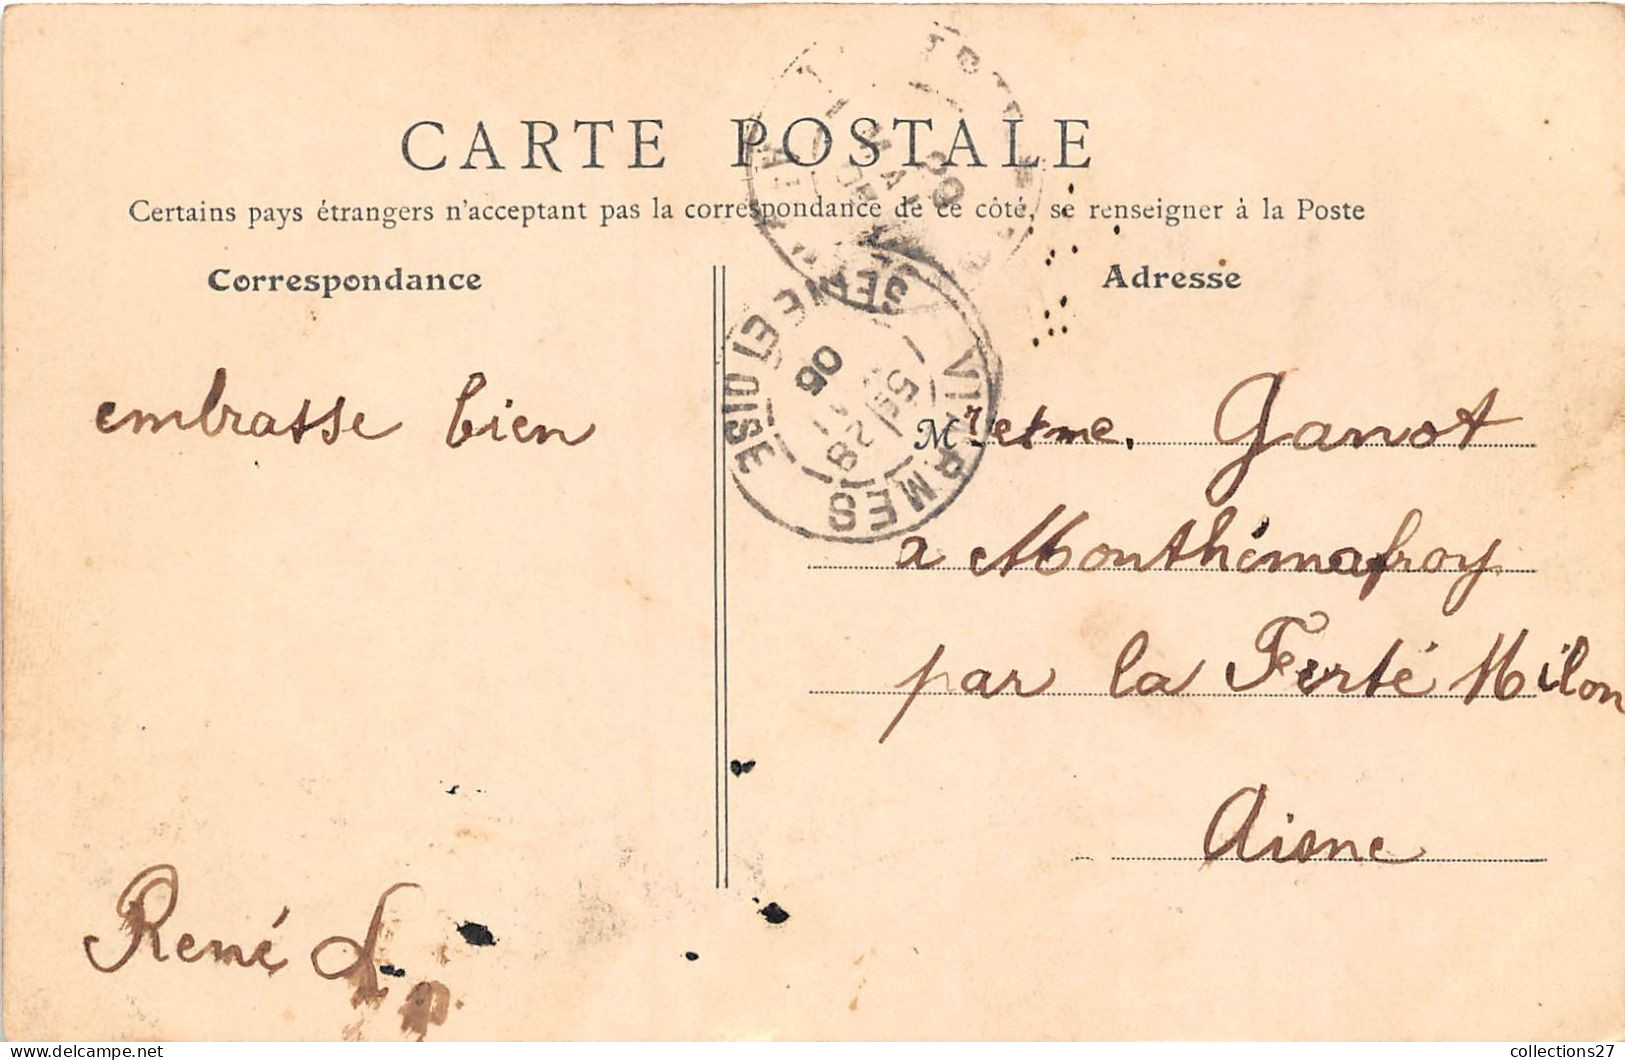 CARTE POSTALE
Certains pays étrangers n'acceptant pas la correspondance de ce côté, se renseigner à la Poste
Correspondance
Adresse
embrasse bien
René L.
Mr et me. Ganot
a Monthémafroy
par la Ferté Milon
Aisne
VIARMES
SEINE ET OISE
28
06
collections27